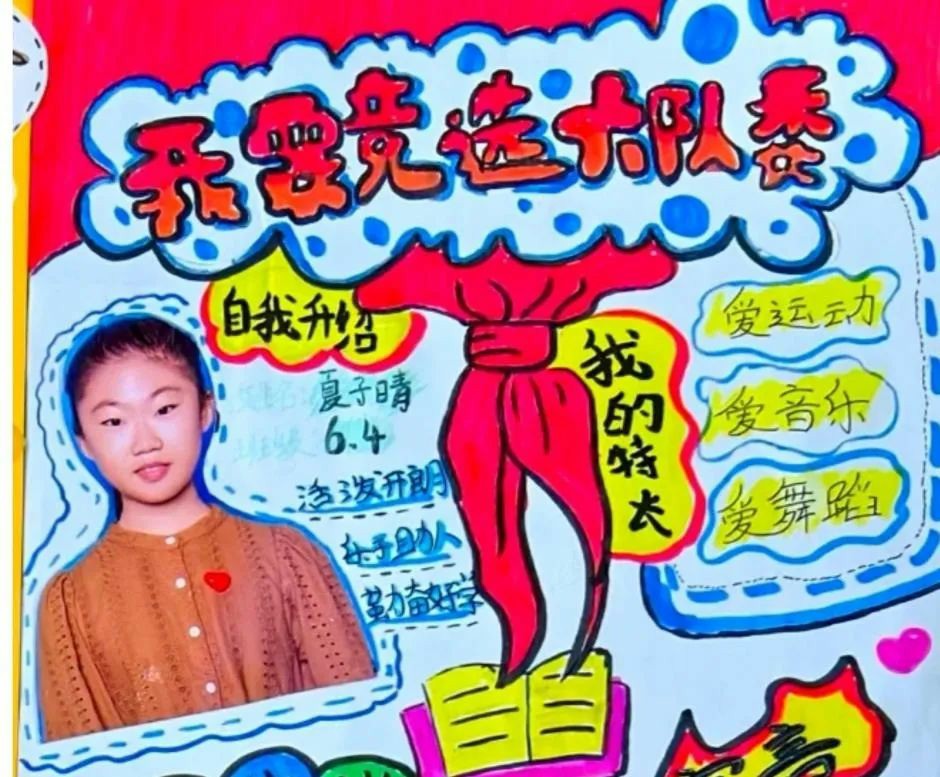 我要竞选大队委
自我介绍
夏子晴
6.4
活泼开朗
乐于助人
勤奋好学
我的特长
爱运动
爱音乐
爱舞蹈